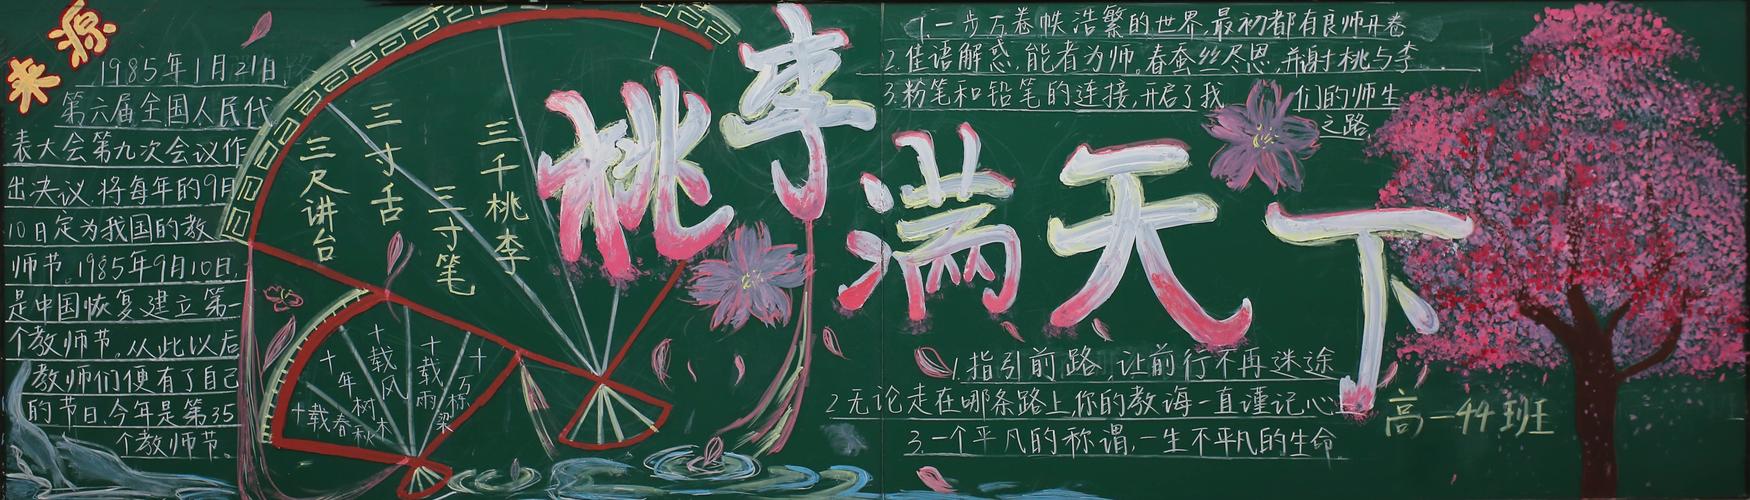 来源
1985年1月21日,
第六届全国人民代
表大会第九次会议作
出决议.将每年的9月
10日定为我国的教
师节.1985年9月10日,
是中国恢复建立第一
个教师节。从此以后
教师们便有了自己
的节日.今年是第35
个教师节。
三尺讲台
三寸舌
三寸笔
三千桃李
十载春秋
十年树木
十载风
十载雨
十万栋梁
桃李满天下
1.一步万卷帙浩繁的世界,最初都有良师开卷
2.佳语解惑,能者为师。春蚕丝尽恩,并谢桃与李
3.粉笔和铅笔的连接,开启了我们的师生
之路
1.指引前路,让前行不再迷途
2.无论走在哪条路上,你的教诲一直谨记心
3.一个平凡的称谓,一生不平凡的生命
高一44班